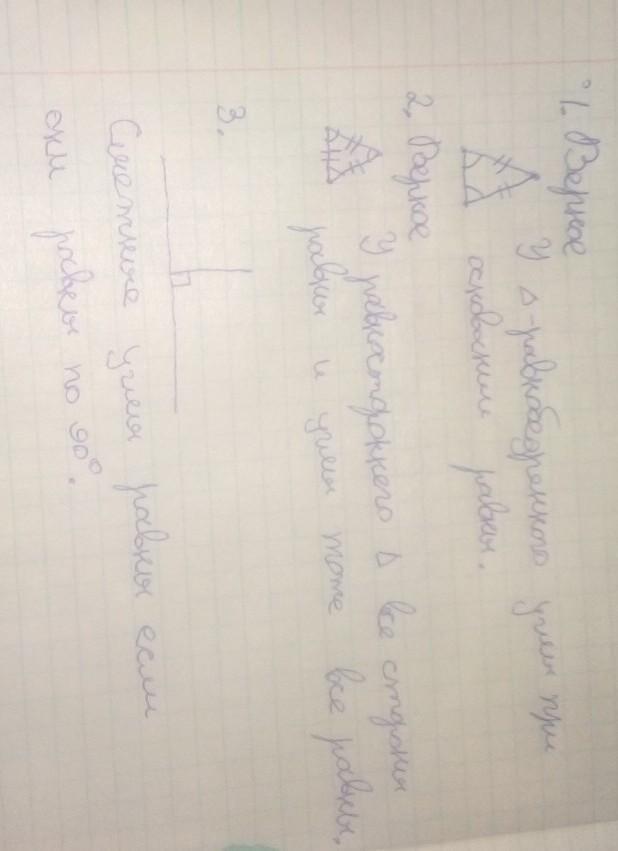 1. Верное
У Δ-равнобедренного углы при
основании равны.
2. Верное
У равностороннего Δ все стороны
равны и углы тоже все равны.
3.
Смежные углы равны если
они равны по 90°.